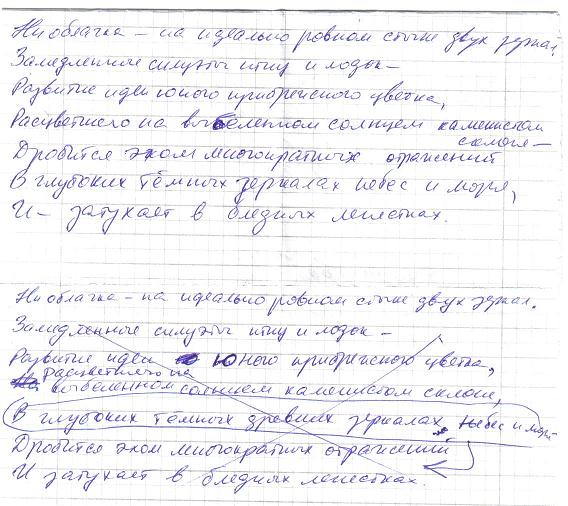 Ни облачка – на идеально ровном стыке двух зеркал.
Замедленные силуэты птиц и лодок –
Развитие идеи юного прибрежного цветка,
Расцветшего на выбеленном солнцем каменистом
склоне –
Дробится эхом многократных отражений
В глубоких тёмных зеркалах небес и моря,
И – затухает в бледных лепестках.
Ни облачка – на идеально ровном стыке двух зеркал.
Замедленные силуэты птиц и лодок –
Развитие идеи юного прибрежного цветка,
Расцветшего на
выбеленном солнцем каменистом склоне,
В глубоких тёмных древних зеркалах небес и моря
Дробится эхом многократных отражений
И затухает в бледных лепестках.